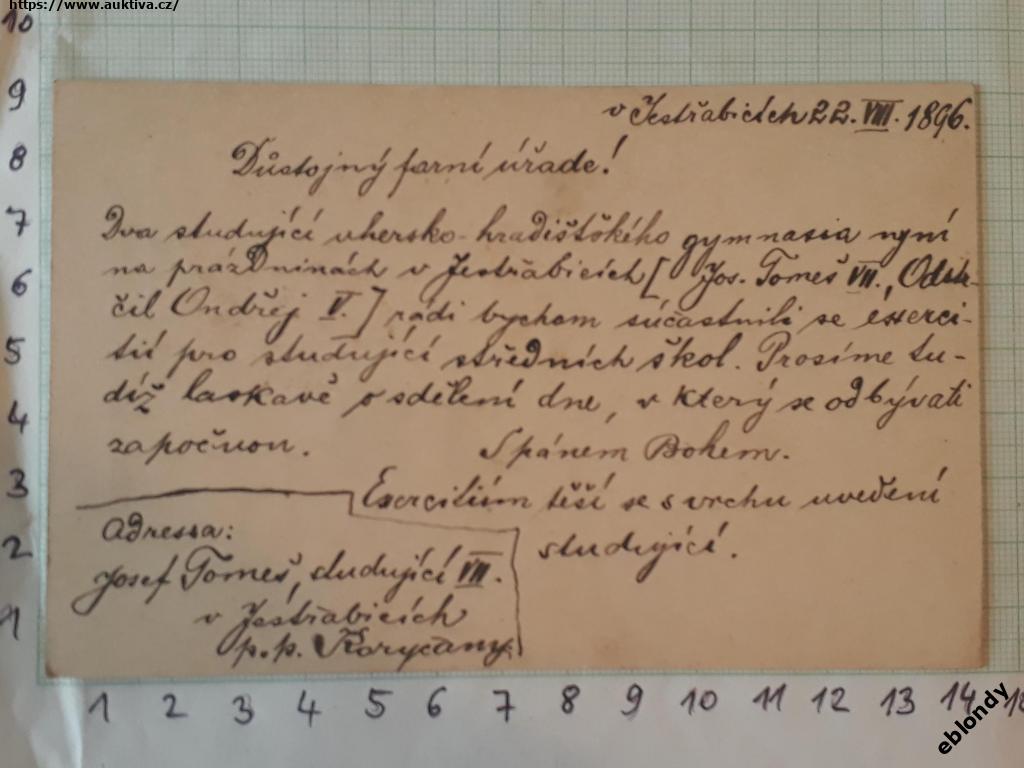 https://www.auktiva.cz/
v Jestřabicích 22. VIII. 1896.
Důstojný farní úřade!
Dva studující uhersko-hradištského gymnasia nyní
na prázdninách v Jestřabicích [Jos. Tomeš VII., Odstr-
čil Ondřej V.] rádi bychom súčastnili se exerci-
tií pro studující středních škol. Prosíme tu-
díž laskavě o sdělení dne, v který se odbývati
započnou. S pánem Bohem.
Exercitiím těší se s vrchu uvedení
studující.
Adressa:
Josef Tomeš, studující VII.
v Jestřabicích
p. p. Koryčany
10
9
8
7
6
5
4
3
2
1
1 2 3 4 5 6 7 8 9 10 11 12 13 14
eblondy